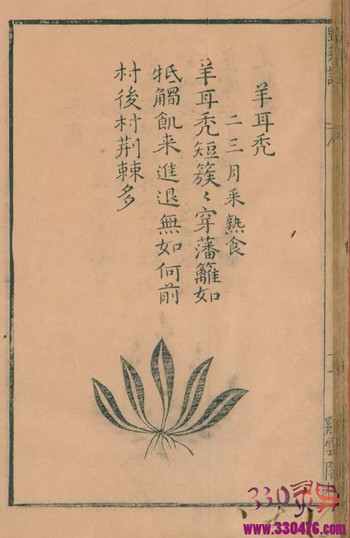 羊耳禿
二三月采熟食
羊耳禿短簇〻穿藩籬如
牴觸飢来進退無如何前
村後村荆棘多
330
www.330476.com